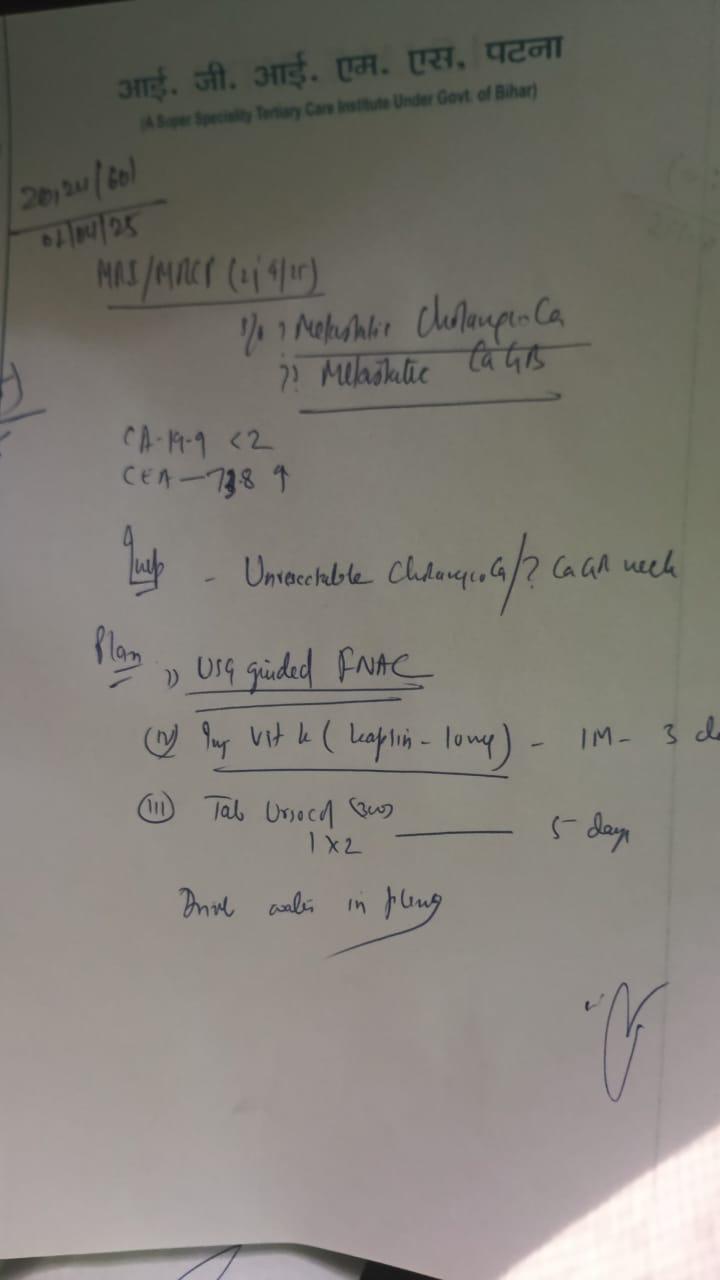 आई. जी. आई. एम. एस. पटना
(A Super Speciality Tertiary Care Institute Under Govt. of Bihar)
MRI/MRCP
? Metastatic Cholangio Ca
?? Metastatic Ca GB
CA-19-9 <2
CEA —
Imp - Unresectable Cholangio Ca/? Ca GB neck
Plan
USG guided FNAC
(IV) Inj Vit k (kaplin - long) - IM - 3
(III) Tab Ursocol (300)
1 x 2 — 5 days
Drink water in plenty